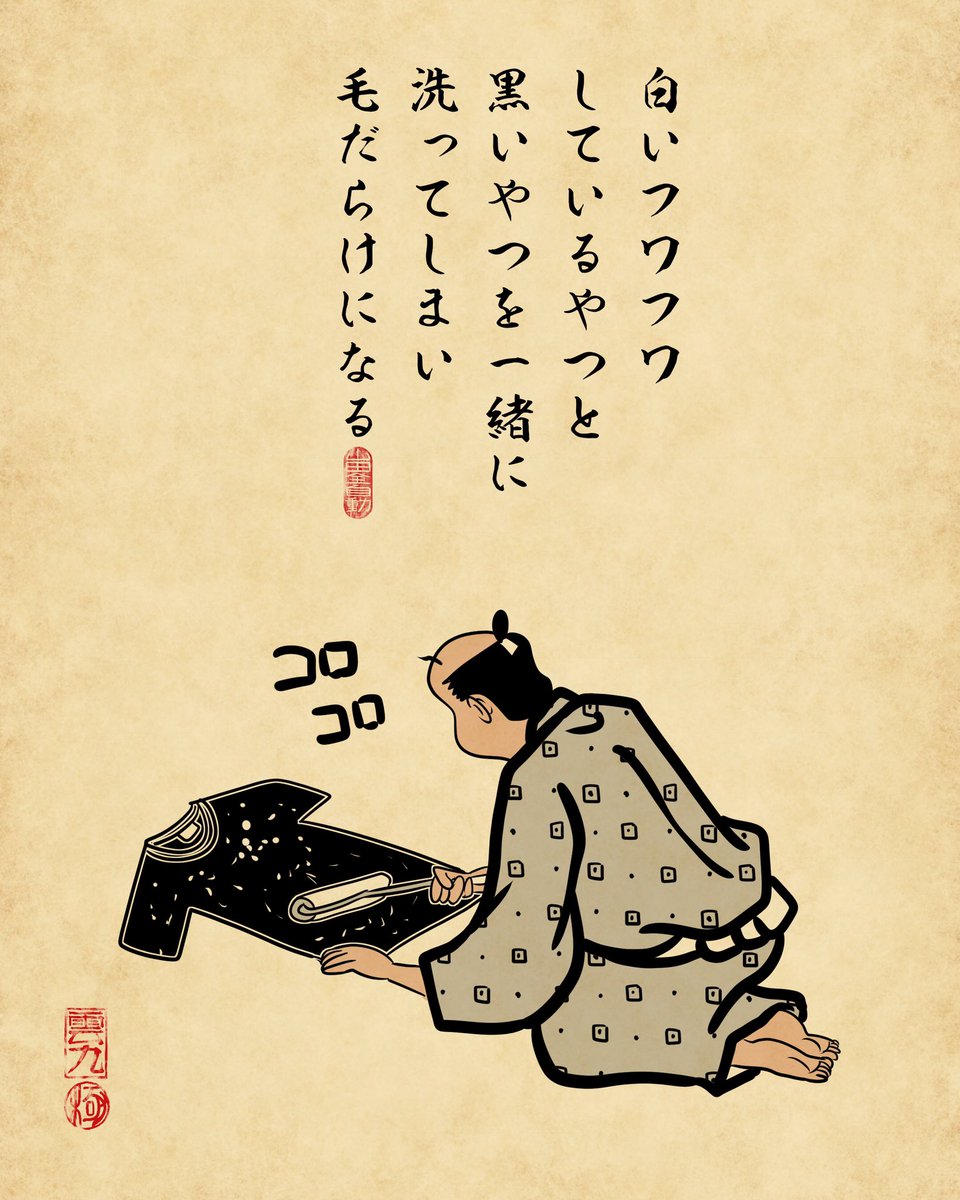 白いフワフワ
しているやつと
黒いやつを一緒に
洗ってしまい
毛だらけになる
コロ
コロ